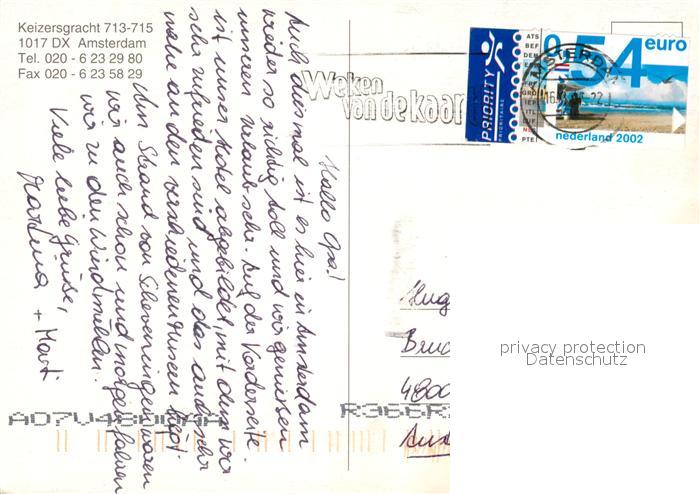 Keizersgracht 713-715
1017 DX Amsterdam
Tel. 020 - 6 23 29 80
Fax 020 - 6 23 58 29
Weken
van de kaart
PRIORITY
PRIORITAIRE
0,54 euro
nederland 2002
Hallo Opa!
Auch diesmal ist es hier in Amsterdam
wieder so richtig toll und wir genießen
unseren Urlaub sehr. Auf der Vorderseite
ist unser Hotel abgebildet, mit dem wir
sehr zufrieden sind und das auch sehr
nahe an den verschiedenen Museen liegt.
Am Strand von Scheveningen waren
wir auch schon und morgen fahren
wir zu den Windmühlen.
Viele liebe Grüsse,
Martina + Marti
Hug
Bruc
4800
privacy protection
Datenschutz
A07V4800AA
R366R